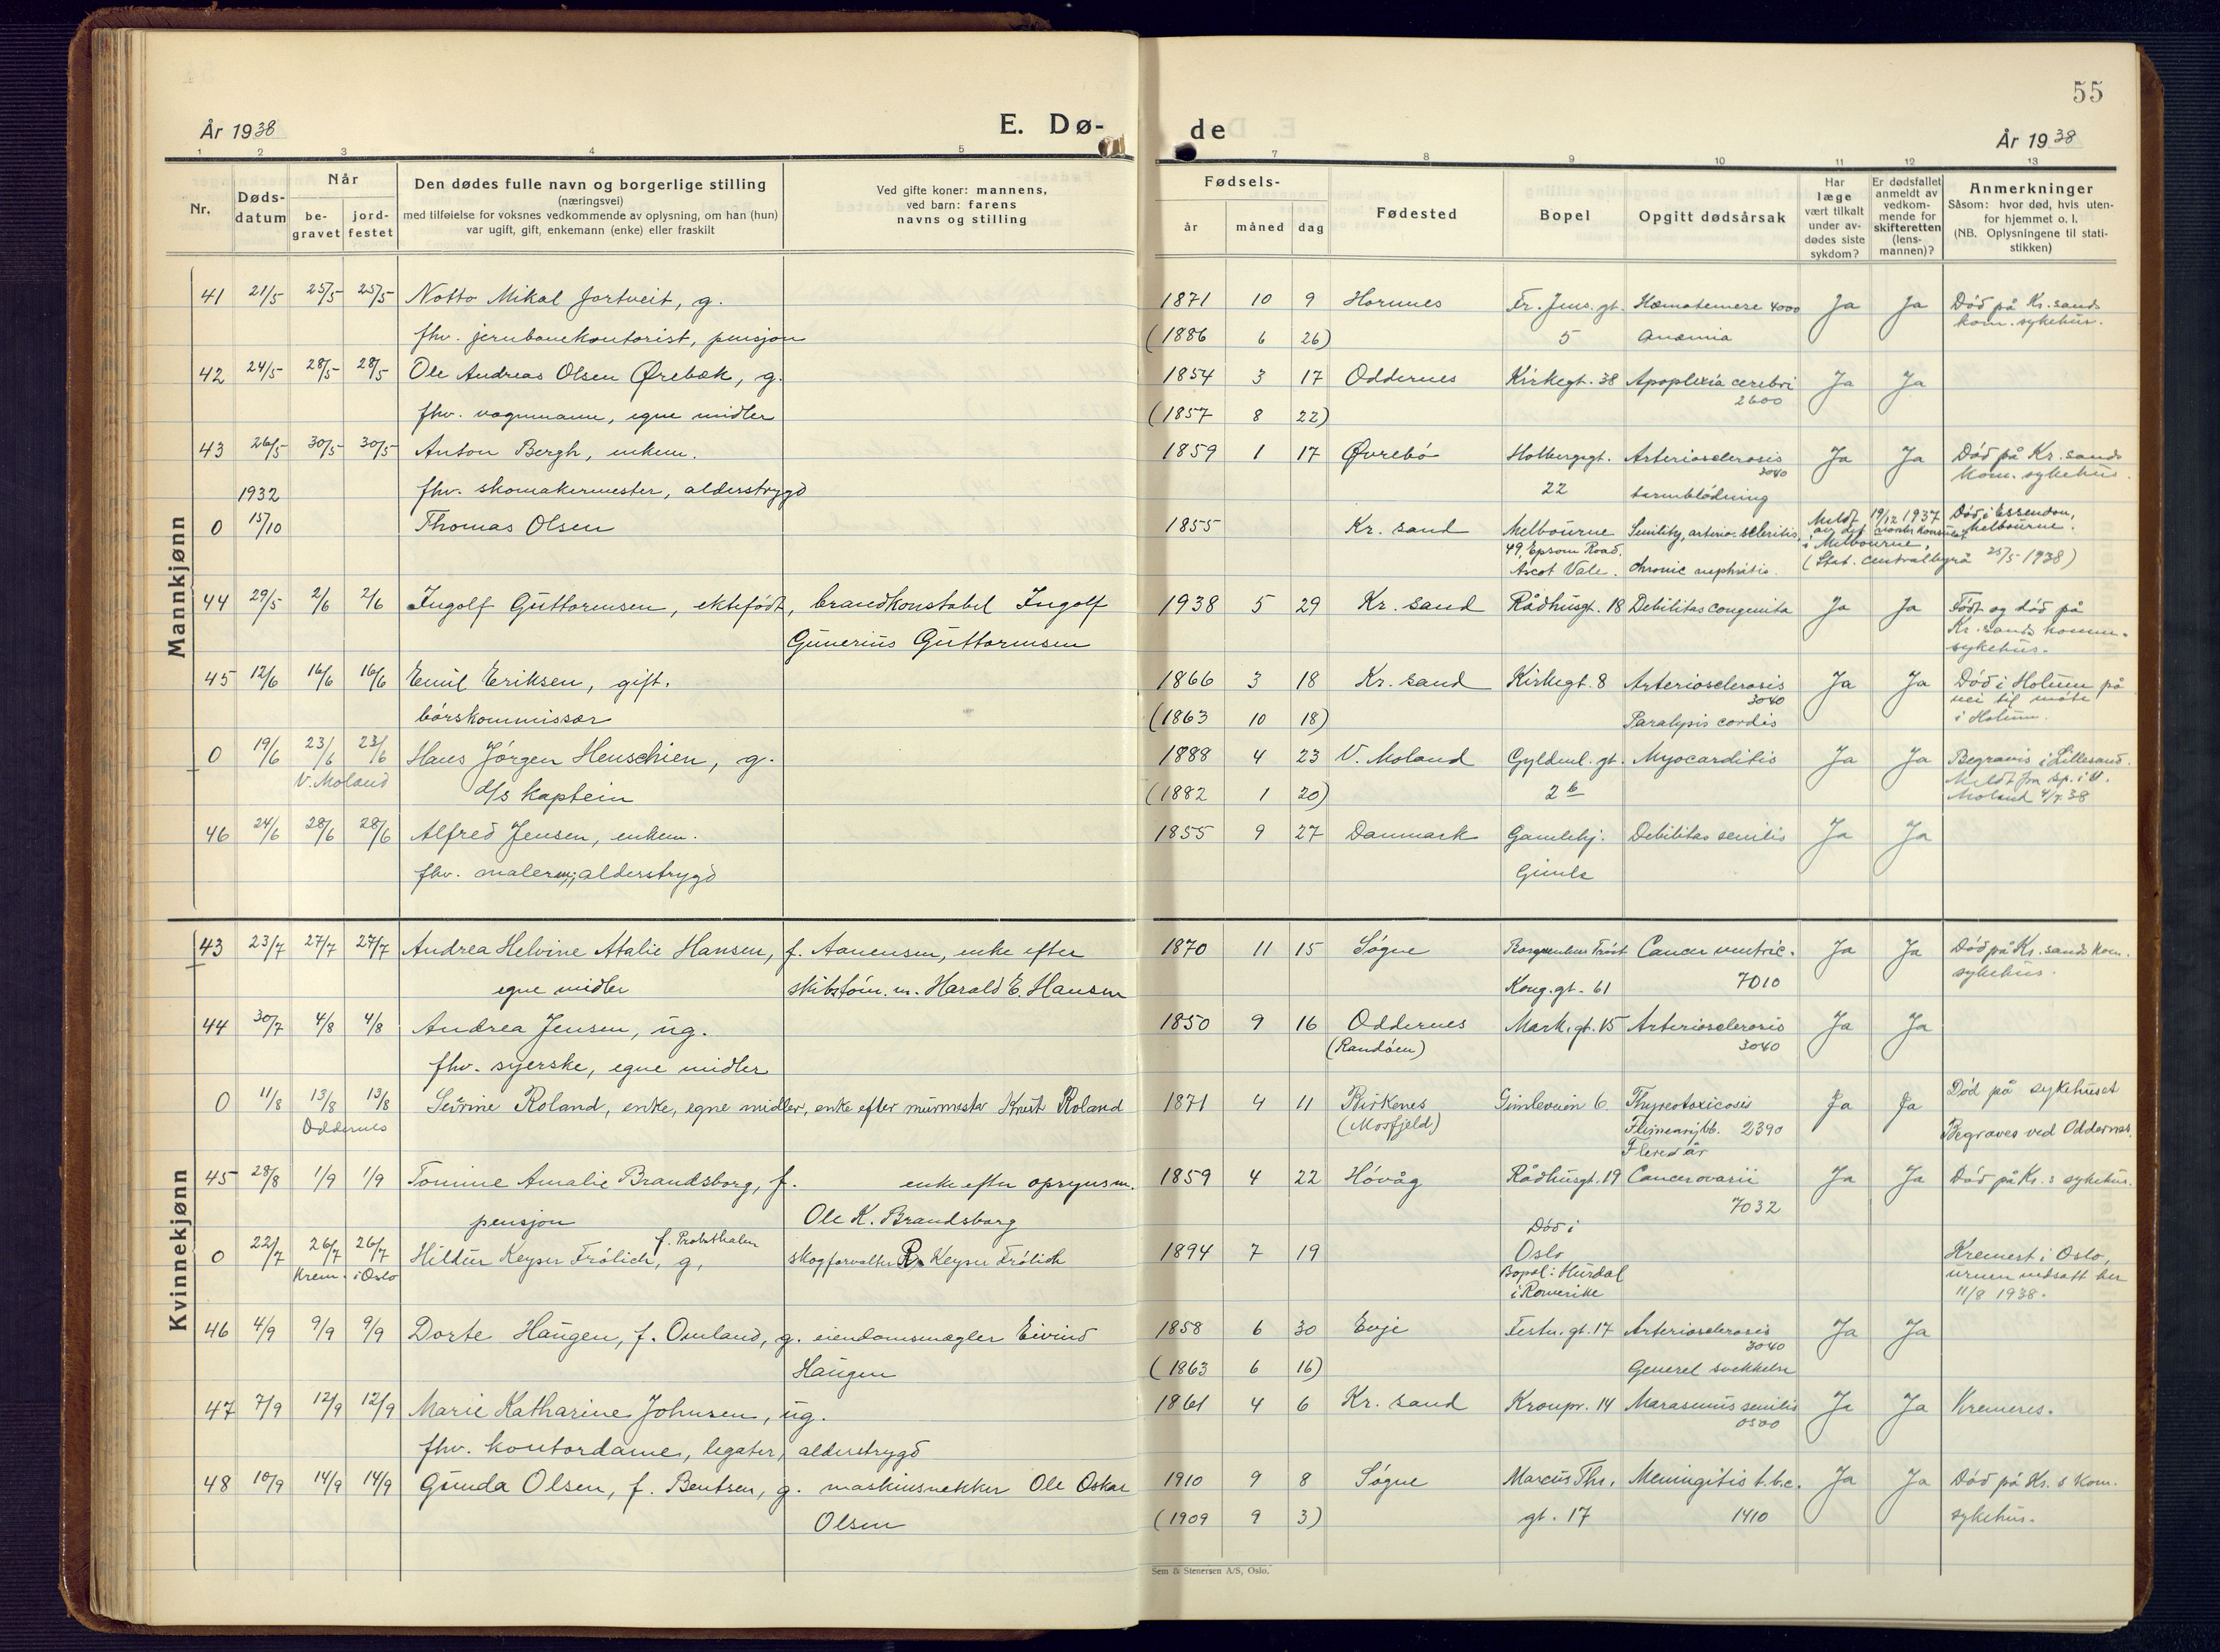 55
År 1938
E. Dø-
de
År 1938
1 2 3 4 5 7 8 9 10 11 12 13
Nr.
Døds-
datum
Når
be-
gravet
jord-
festet
Den dødes fulle navn og borgerlige stilling
(næringsvei)
med tilføielse for voksnes vedkommende av oplysning, om han (hun)
var ugift, gift, enkemann (enke) eller fraskilt
Ved gifte koner: mannens,
ved barn: farens
navns og stilling
Fødsels-
år måned dag
Fødested
Bopel
Opgitt dødsårsak
Har
læge
vært tilkalt
under av-
dødes siste
sykdom?
Er dødsfallet
anmeldt av
vedkom-
mende for
skifteretten
(lens-
mannen)?
Anmerkninger
Såsom: hvor død, hvis uten-
for hjemmet o. l.
(NB. Oplysningene til stati-
stikken)
Mannkjønn
41 21/5 25/5 25/5 Notto Mikal Jortveit, g. 1871 10 9 Hornnes Fr. Jens. gt. Hæmatemese 4000 Ja Ja Død på Kr.sands
kom. sykehus.
fhv. jernbanekontorist, pensjon (1886 6 26) 5 Anæmia
42 24/5 28/5 28/5 Ole Andreas Olsen Ørebæk, g. 1854 3 17 Oddernes Kirkegt. 38 Apoplexia cerebri Ja Ja
2600
fhv. vognmann, egne midler (1857 8 22)
43 26/5 30/5 30/5 Anton Bergh, enkem. 1859 1 17 Øvrebö Holbergsgt. Arteriosclerosis Ja Ja Död på Kr. sands
3040
kom. sykehus.
fhv. skomakermester, alderstrygd 22 tarmblödning
1932
0 15/10 Thomas Olsen 1855 Kr. sand Melbourne Senility, arterio-scleritis, Meldt 19/12 1937 Död i Essendon,
i Melbourne, Melbourne.
49, Epsom Road.
Ascot Vale. chronic nephritis. (Stat. centralbyrå 25/5 1938)
44 29/5 2/6 2/6 Ingolf Guttormsen, ektefödt, brandkonstabel Ingolf 1938 5 29 Kr. sand Rådhusgt. 18 Debilitas congenita Ja Ja Födt og död på
Gunerius Guttormsen Kr. sands komm.
sykehus.
45 12/6 16/6 16/6 Emil Eriksen, gift. 1866 3 18 Kr. sand Kirkegt. 8 Arteriosclerosis Ja Ja Död i Holum på
3040 vei til möte
börskommissær (1863 10 18) Paralysis cordis i Holum.
0 19/6 23/6 23/6 Hans Jörgen Henschien, g. 1888 4 23 V. Moland Gyldenl. gt. Myocarditis Ja Ja Begraves i Lillesand.
V. Moland Meldt fra sp. i V.
d/s kaptein (1882 1 20) 2 b Moland 4/7 38
46 24/6 28/6 28/6 Alfred Jensen, enkem. 1855 9 27 Danmark Gamlehj. Debilitas senilis Ja Ja
fhv. malerm., alderstrygd Gimle
Kvinnekjønn
43 23/7 27/7 27/7 Andrea Helvine Atalie Hansen, f. Aanensen, enke efter 1870 11 15 Sögne Cancer ventric. Ja Ja Död på Kr.sands kom.
sykehus.
egne midler skibstöm. m. Harald E. Hansen Kong. gt. 61 7010
44 30/7 4/8 4/8 Andrea Jensen, ug. 1850 9 16 Oddernes Mark. gt. 15 Arteriosclerosis Ja Ja
(Randöen) 3040
fhv. syerske, egne midler
0 11/8 13/8 13/8 Severine Roland, enke, egne midler, enke efter murmester Knut Roland 1871 4 11 Birkenes Gimleveien 6 Thyreotoxicosis Ja Ja Död på sykehuset
Oddernes (Mosfjeld) 2390 Begraves ved Oddernes.
Flere år
45 28/8 1/9 1/9 Tomine Amalie Brandsborg, f. enke efter opsynsm. 1859 4 22 Hövåg Rådhusgt. 19 Cancer ovarii Ja Ja Död på Kr. s sykehus.
pensjon Ole K. Brandsborg 7032
0 22/7 26/7 26/7 Hildur Keyser Frölich, g, f. Probsthalen skogforvalter R. Keyser Frölich 1894 7 19 Död i
Oslo Kremert i Oslo,
Krem. i Oslo Bopel: Hurdal urnen nedsatt her
i Romerike 11/8 1938.
46 4/9 9/9 9/9 Dorte Haugen, f. Omland, g. eiendomsmægler Eivind 1858 6 30 Evje Festn. gt. 17 Arteriosclerosis Ja Ja
3040
Haugen (1863 6 16) Generel svekkelse
47 7/9 12/9 12/9 Marie Katharine Johnsen, ug. 1861 4 6 Kr. sand Kronpr. 14 Marasmus senilis Ja Ja Kremeres.
0500
fhv. kontordame, legater, alderstrygd
48 10/9 14/9 14/9 Gunda Olsen, f. Bentsen, g. maskinsnekker Ole Oskar 1910 9 8 Sögne Marcus Thr. Meningitis t.b.c. Ja Ja Död på Kr. s kom.
Olsen (1909 9 3) gt. 17 1410 sykehus.
Sem & Stenersen A/S, Oslo.